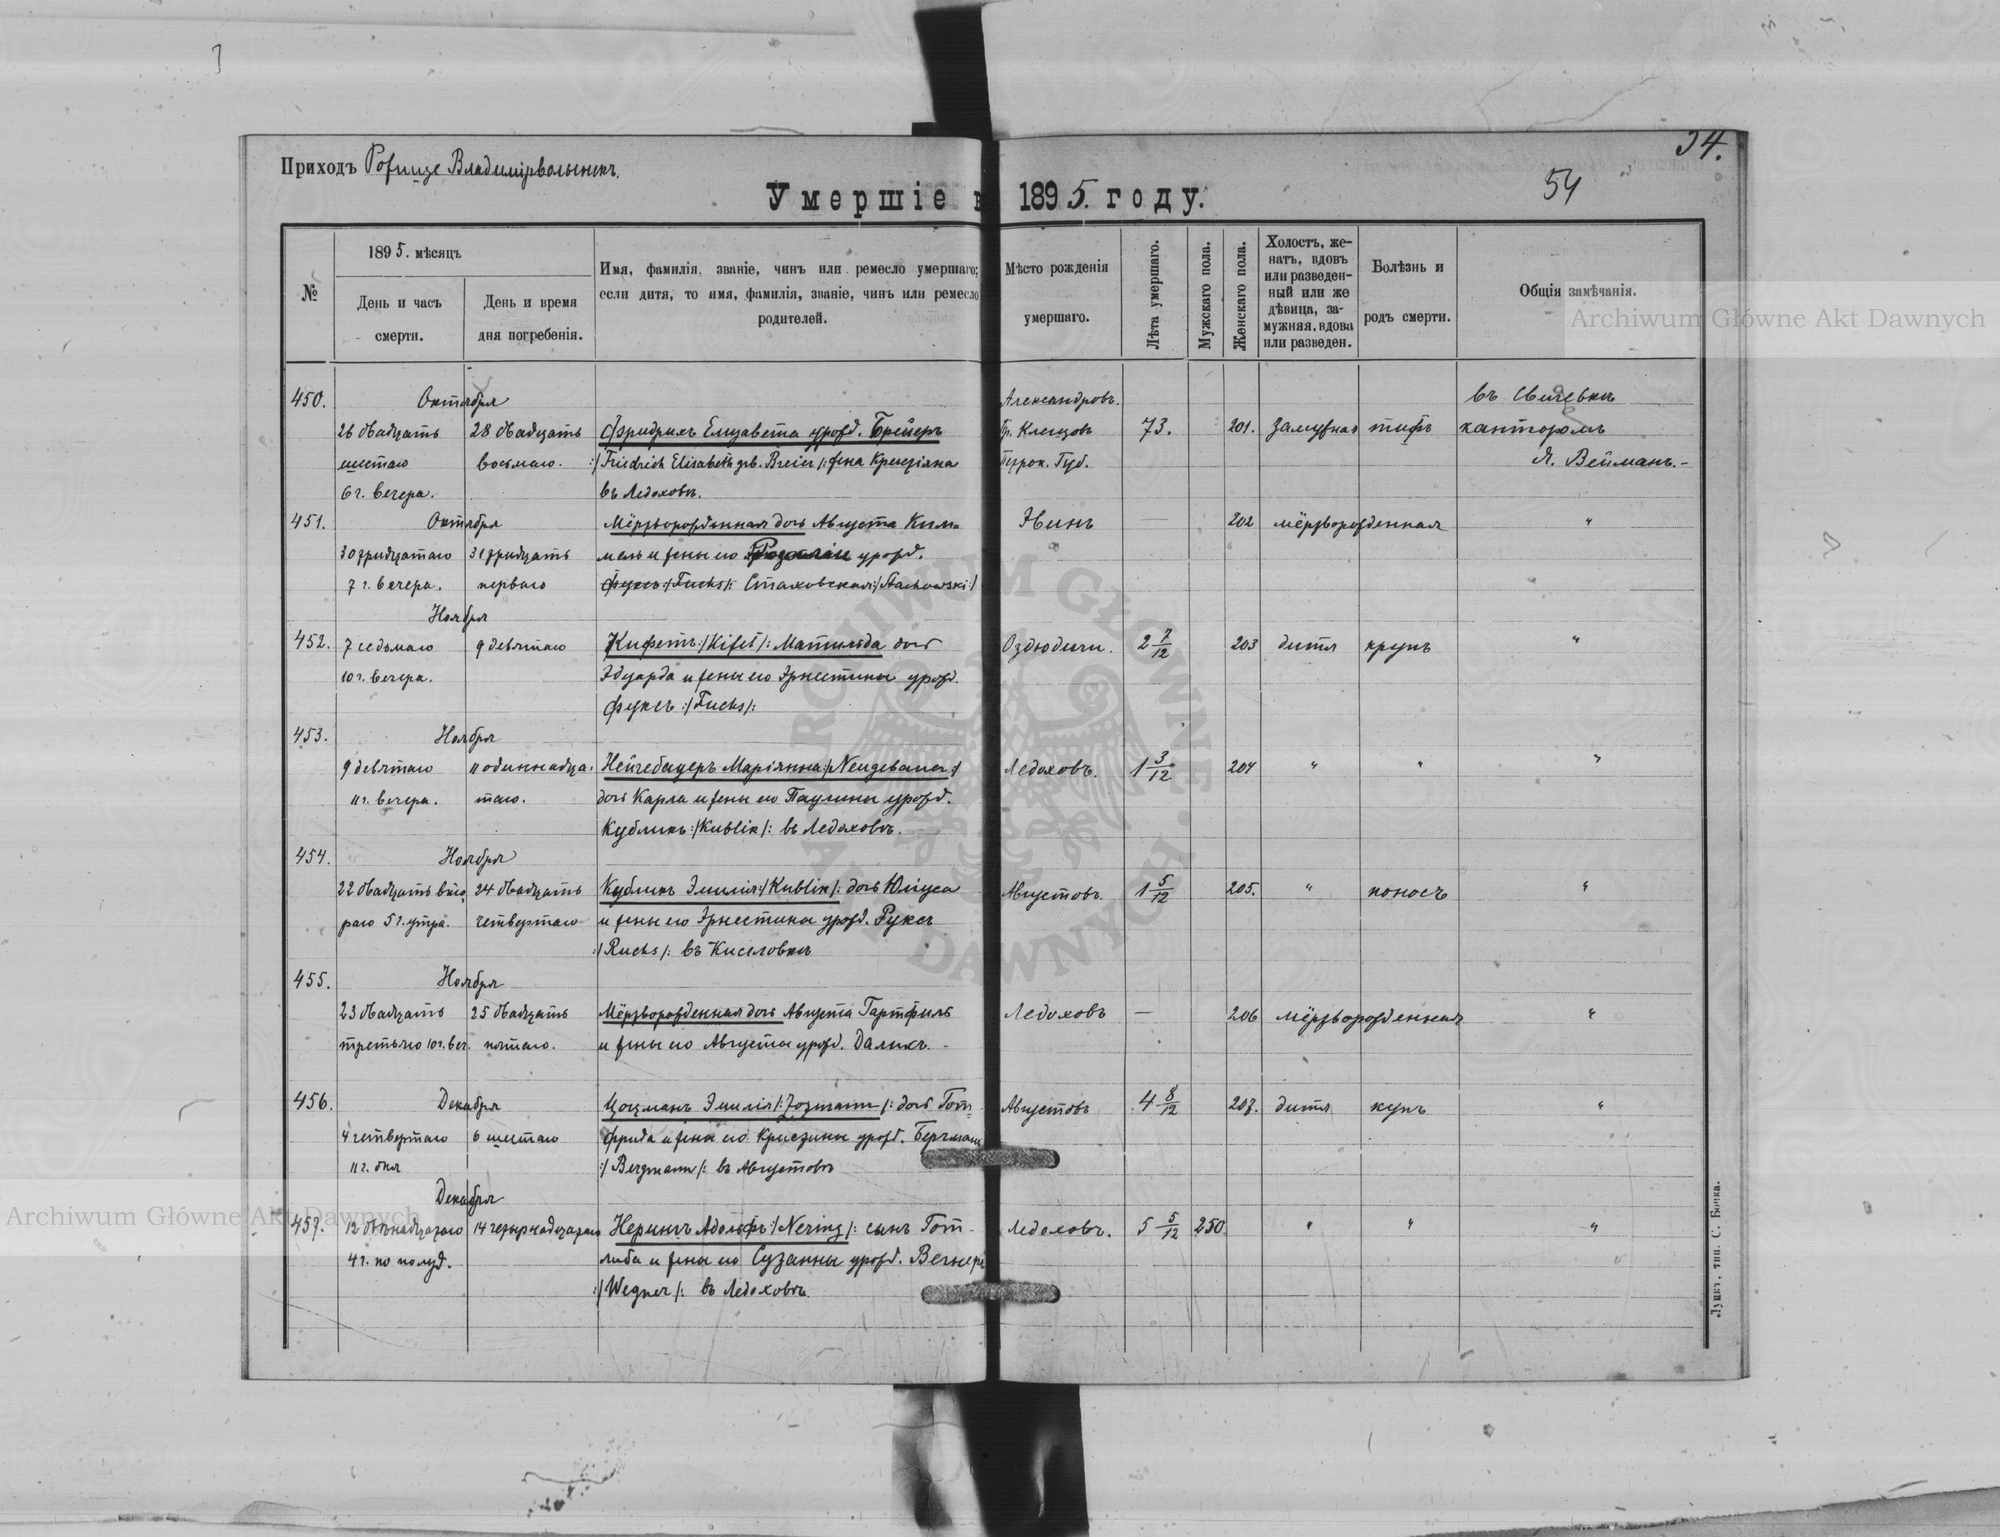 34.
54
Приходъ Рожище Владимірволынск.
Умершіе в 1895. году.
№
1895. мѣсяцъ
День и часъ смерти.
День и время дня погребенія.
Имя, фамилія, званіе, чинъ или ремесло умершаго;
если дитя, то имя, фамилія, званіе, чинъ или ремесло
родителей.
Мѣсто рожденія умершаго.
Лѣта умершаго.
Мужскаго пола.
Женскаго пола.
Холостъ, же-
натъ, вдовъ
или разведен-
ный или же
дѣвица, за-
мужняя, вдова
или разведен.
Болѣзнь и родъ смерти.
Общія замѣчанія.
450. Октября Александровъ. въ Свичевкѣ
26 двадцать 28 двадцать Фридрихъ Елизавета урожд. Брейеръ 73. 201. замужняя тифъ канторомъ
шестаго восьмаго. :/Friedrich Elisabeth geb. Breier/: жена Губ. Я. Вейманъ.-
6 ч. вечера. въ Ледоховѣ.
451. Октября Мёртворожденная дочь Августа Ким- 202 мёртворожденная "
30 тридцатаго 31 тридцать мель и жены его урожд.
7 ч. вечера. перваго Фуксъ :/Fuchs/: Стаховская :/Stachowski:/
Ноября
452. 7 седьмаго 9 девятаго Кифетъ :/Kifet/: Матильда дочь Оздютичи. 2 7/12 203 дитя крупъ "
10 ч. вечера. Эдуарда и жены его Эрнестины урожд.
Фуксъ :/Fuchs/:
453. Ноября
9 девятаго 11 одиннадца- Нейгебауеръ Маріянна :/Neugebauer:/ Ледоховъ. 1 3/12 204 " " "
11 ч. вечера. таго. дочь Карла и жены его Паулины урожд.
Кубликъ :/Kublik/: въ Ледоховѣ.
454. Ноября
22 двадцать вто- 24 двадцать Кубликъ Эмилія :/Kublik/: дочь Юліуса Августовъ. 1 5/12 205. " поносъ "
раго 5 ч. утра. четвертаго и жены его Эрнестины урожд. Руксъ
:/Ruchs/: въ Киселовкѣ
455. Ноября
23 двадцать 25 двадцать Мёртворожденная дочь Августа Гартфиль Ледоховъ — 206 мёртворожденная "
третьяго 10 ч. веч. пятаго. и жены его Августы урожд. Далихъ. -
456. Декабря Цоцманъ Эмилія /:Zozmann/: дочь Гот- Августовъ 4 8/12 207. дитя купъ "
4 четвертаго 6 шестаго фрида и жены его Кристины урожд. Бергманъ
11 ч. дня :/Bergmann/: въ Августовѣ
Декабря
457. 12 двѣнадцатаго 14 четырнадцатаго Нерингъ Адольфъ :/Nering/: сынъ Гот- Ледоховъ. 5 5/12 250. " " "
4 ч. по полуд. либа и жены его Сузанны урожд. Вегнеръ
:/Wegner/: въ Ледоховѣ.
Луцкъ, тип. С. Бонка.
Archiwum Główne Akt Dawnych
Archiwum Główne Akt Dawnych
ARCHIWUM GŁÓWNE AKT DAWNYCH